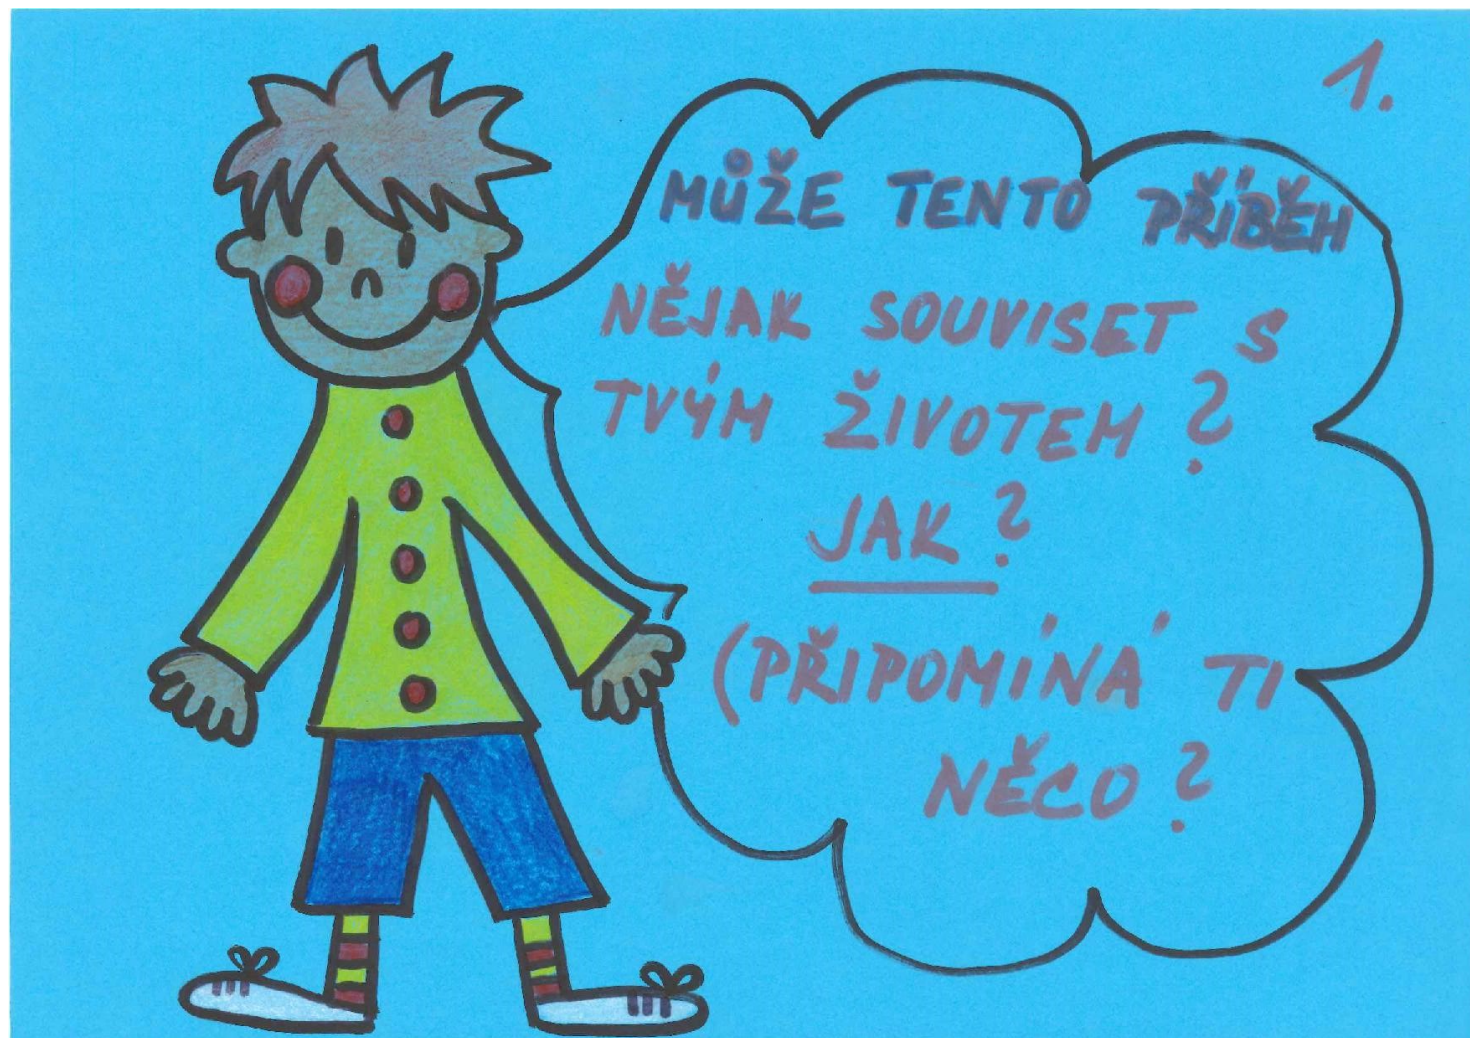 1.
MŮŽE TENTO PŘÍBĚH
NĚJAK SOUVISET S
TVÝM ŽIVOTEM?
JAK?
(PŘIPOMÍNÁ TI
NĚCO?